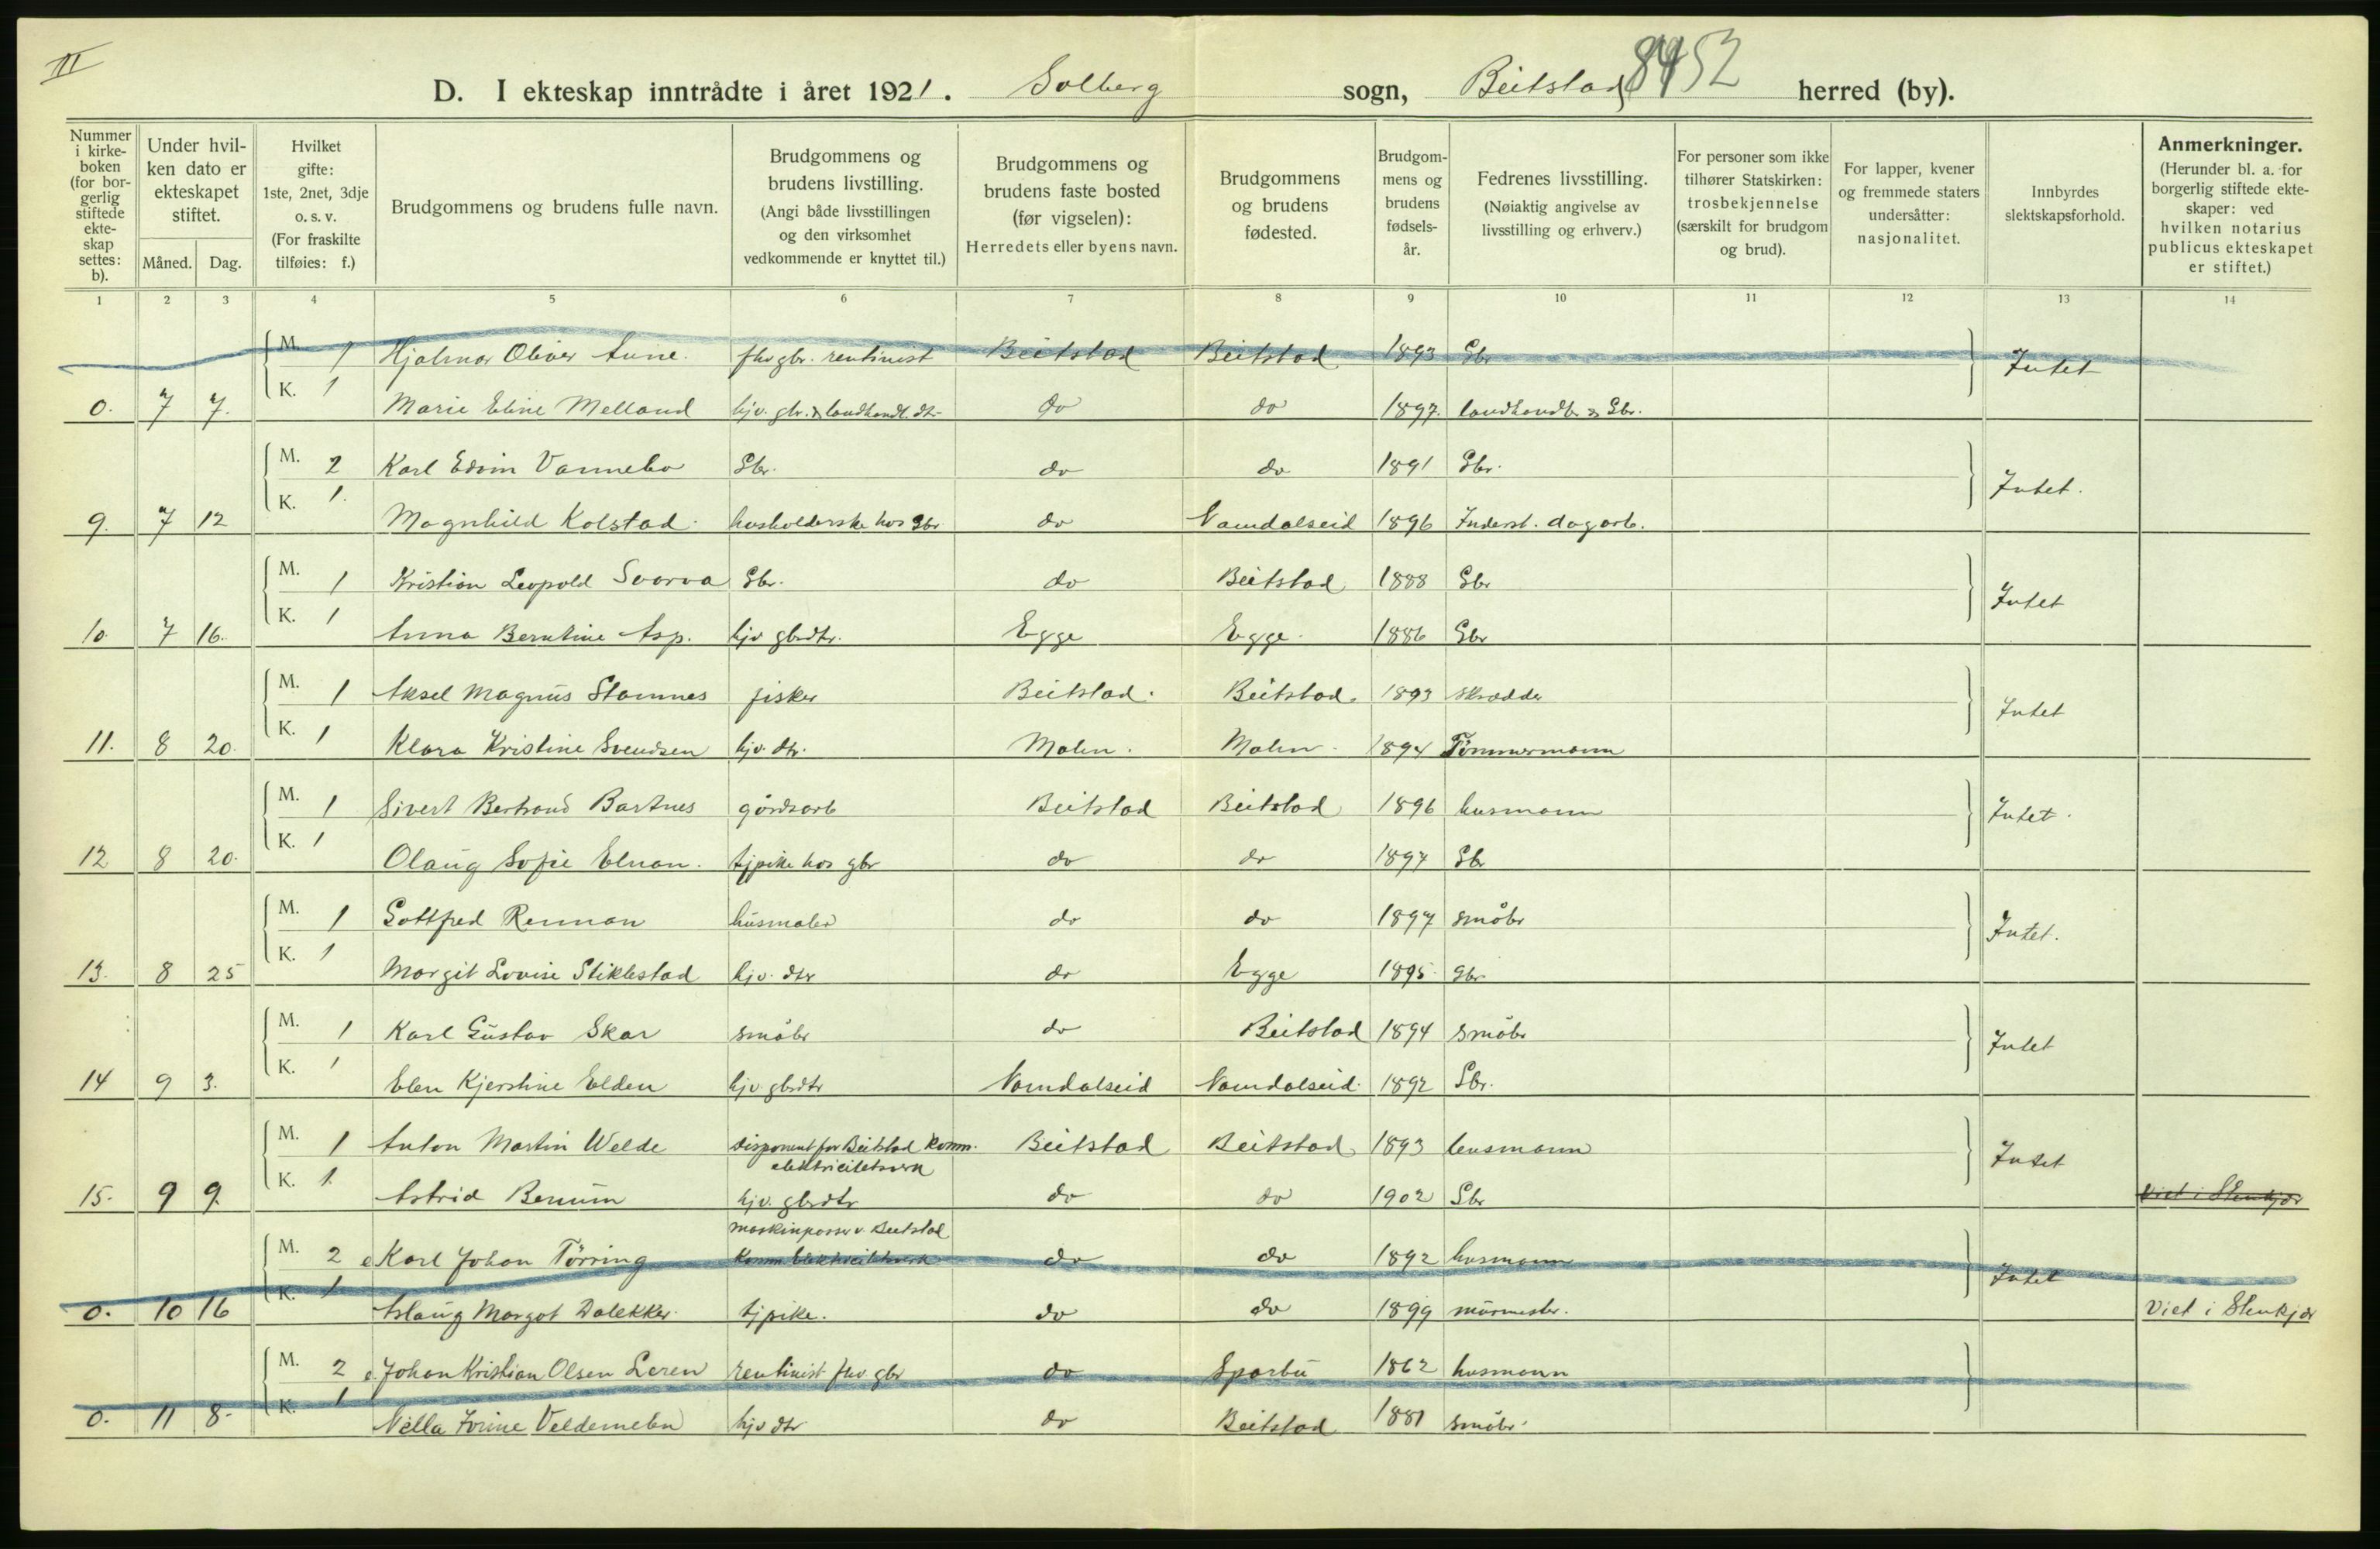 III
D. I ekteskap inntrådte i året 1921. Solberg sogn, Beitstad 8452 herred (by).
Nummer i kirke-boken (for bor-gerlig stiftede ekte-skap settes: b).
Under hvil-ken dato er ekteskapet stiftet.
Måned. Dag.
Hvilket gifte: 1ste, 2net, 3dje o. s. v. (For fraskilte tilføies: f.)
Brudgommens og brudens fulle navn.
Brudgommens og brudens livstilling. (Angi både livsstillingen og den virksomhet vedkommende er knyttet til.)
Brudgommens og brudens faste bosted (før vigselen): Herredets eller byens navn.
Brudgommens og brudens fødested.
Brudgom-mens og brudens fødsels-år.
Fedrenes livsstilling. (Nøiaktig angivelse av livsstilling og erhverv.)
For personer som ikke tilhører Statskirken: trosbekjennelse (særskilt for brudgom og brud).
For lapper, kvener og fremmede staters undersåtter: nasjonalitet.
Innbyrdes slektskapsforhold.
Anmerkninger. (Herunder bl. a. for borgerlig stiftede ekte-skaper: ved hvilken notarius publicus ekteskapet er stiftet.)
1 2 3 4 5 6 7 8 9 10 11 12 13 14
M. 1 Hjalmar Oliver Aune. fhv gbr. rentinist Beitstad Beitstad 1893 Gbr Intet
0. 7 7. K. 1 Marie Eline Melland hjv. gbr. & landhandl. dtr do do 1897. landhandl. & Gbr.
M. 2 Karl Edvin Vannebo Gbr. do do 1891 Gbr. Intet.
9. 7 12 K. 1. Magnhild Kolstad husholderske hos Gbr do Namdalseid 1896 Inderst. dagarb.
M. 1 Kristian Leopold Svarva Gbr. do Beitstad 1888 Gbr Intet
10. 7 16. K. 1 Anna Berntine Asp. hjv gbrdtr. Egge Egge. 1886 Gbr
M. 1 Aksel Magnus Stamnes fisker Beitstad. Beitstad. 1893 skrædder Intet
11. 8 20. K. 1 Klara Kristine Svendsen hjv. dtr. Malm. Malm. 1894 Tömmermann
M. 1 Sivert Bertrand Bartnes gårdsarb Beitstad Beitstad 1896 husmann Intet.
12 8 20. K. 1 Olaug Sofie Elnan. tjpike hos gbr do do 1897 Gbr
M. 1 Gottfred Rennan husmaler do do 1897 småbr Intet.
13. 8 25 K. 1 Margit Lovise Stiklestad hjv. dtr do Egge 1895. gbr
M. 1 Karl Gustav Skar småbr do Beitstad 1894 småbr Intet
14 9 3. K. 1 Elen Kjerstine Elden hjv gbrdtr Namdalseid Namdalseid. 1892 Gbr.
M. 1 Anton Martin Welde disponent for Beitstad komm. elektricitetsverk Beitstad Beitstad 1893 lensmann Intet
15. 9 9. K. 1. Astrid Benum hjv. gbrdtr do do 1902 Gbr Viet i Stenkjær
maskinpasser v. Beitstad
M. 2 e Karl Johan Törring Komm Elektricitetsverk do do 1892 husmann Intet
0. 10 16 K. 1 Aslaug Margot Dalekker. tjpike. do do 1899 mürmester. Viet i Stenkjær
M. 2 e. Johan Kristian Olsen Leren rentinist fhv. gbr do Sparbu 1862 husmann
0. 11 8. K. 1 Nella Jorine Veldemelen hjv dtr do Beitstad 1881 småbr.